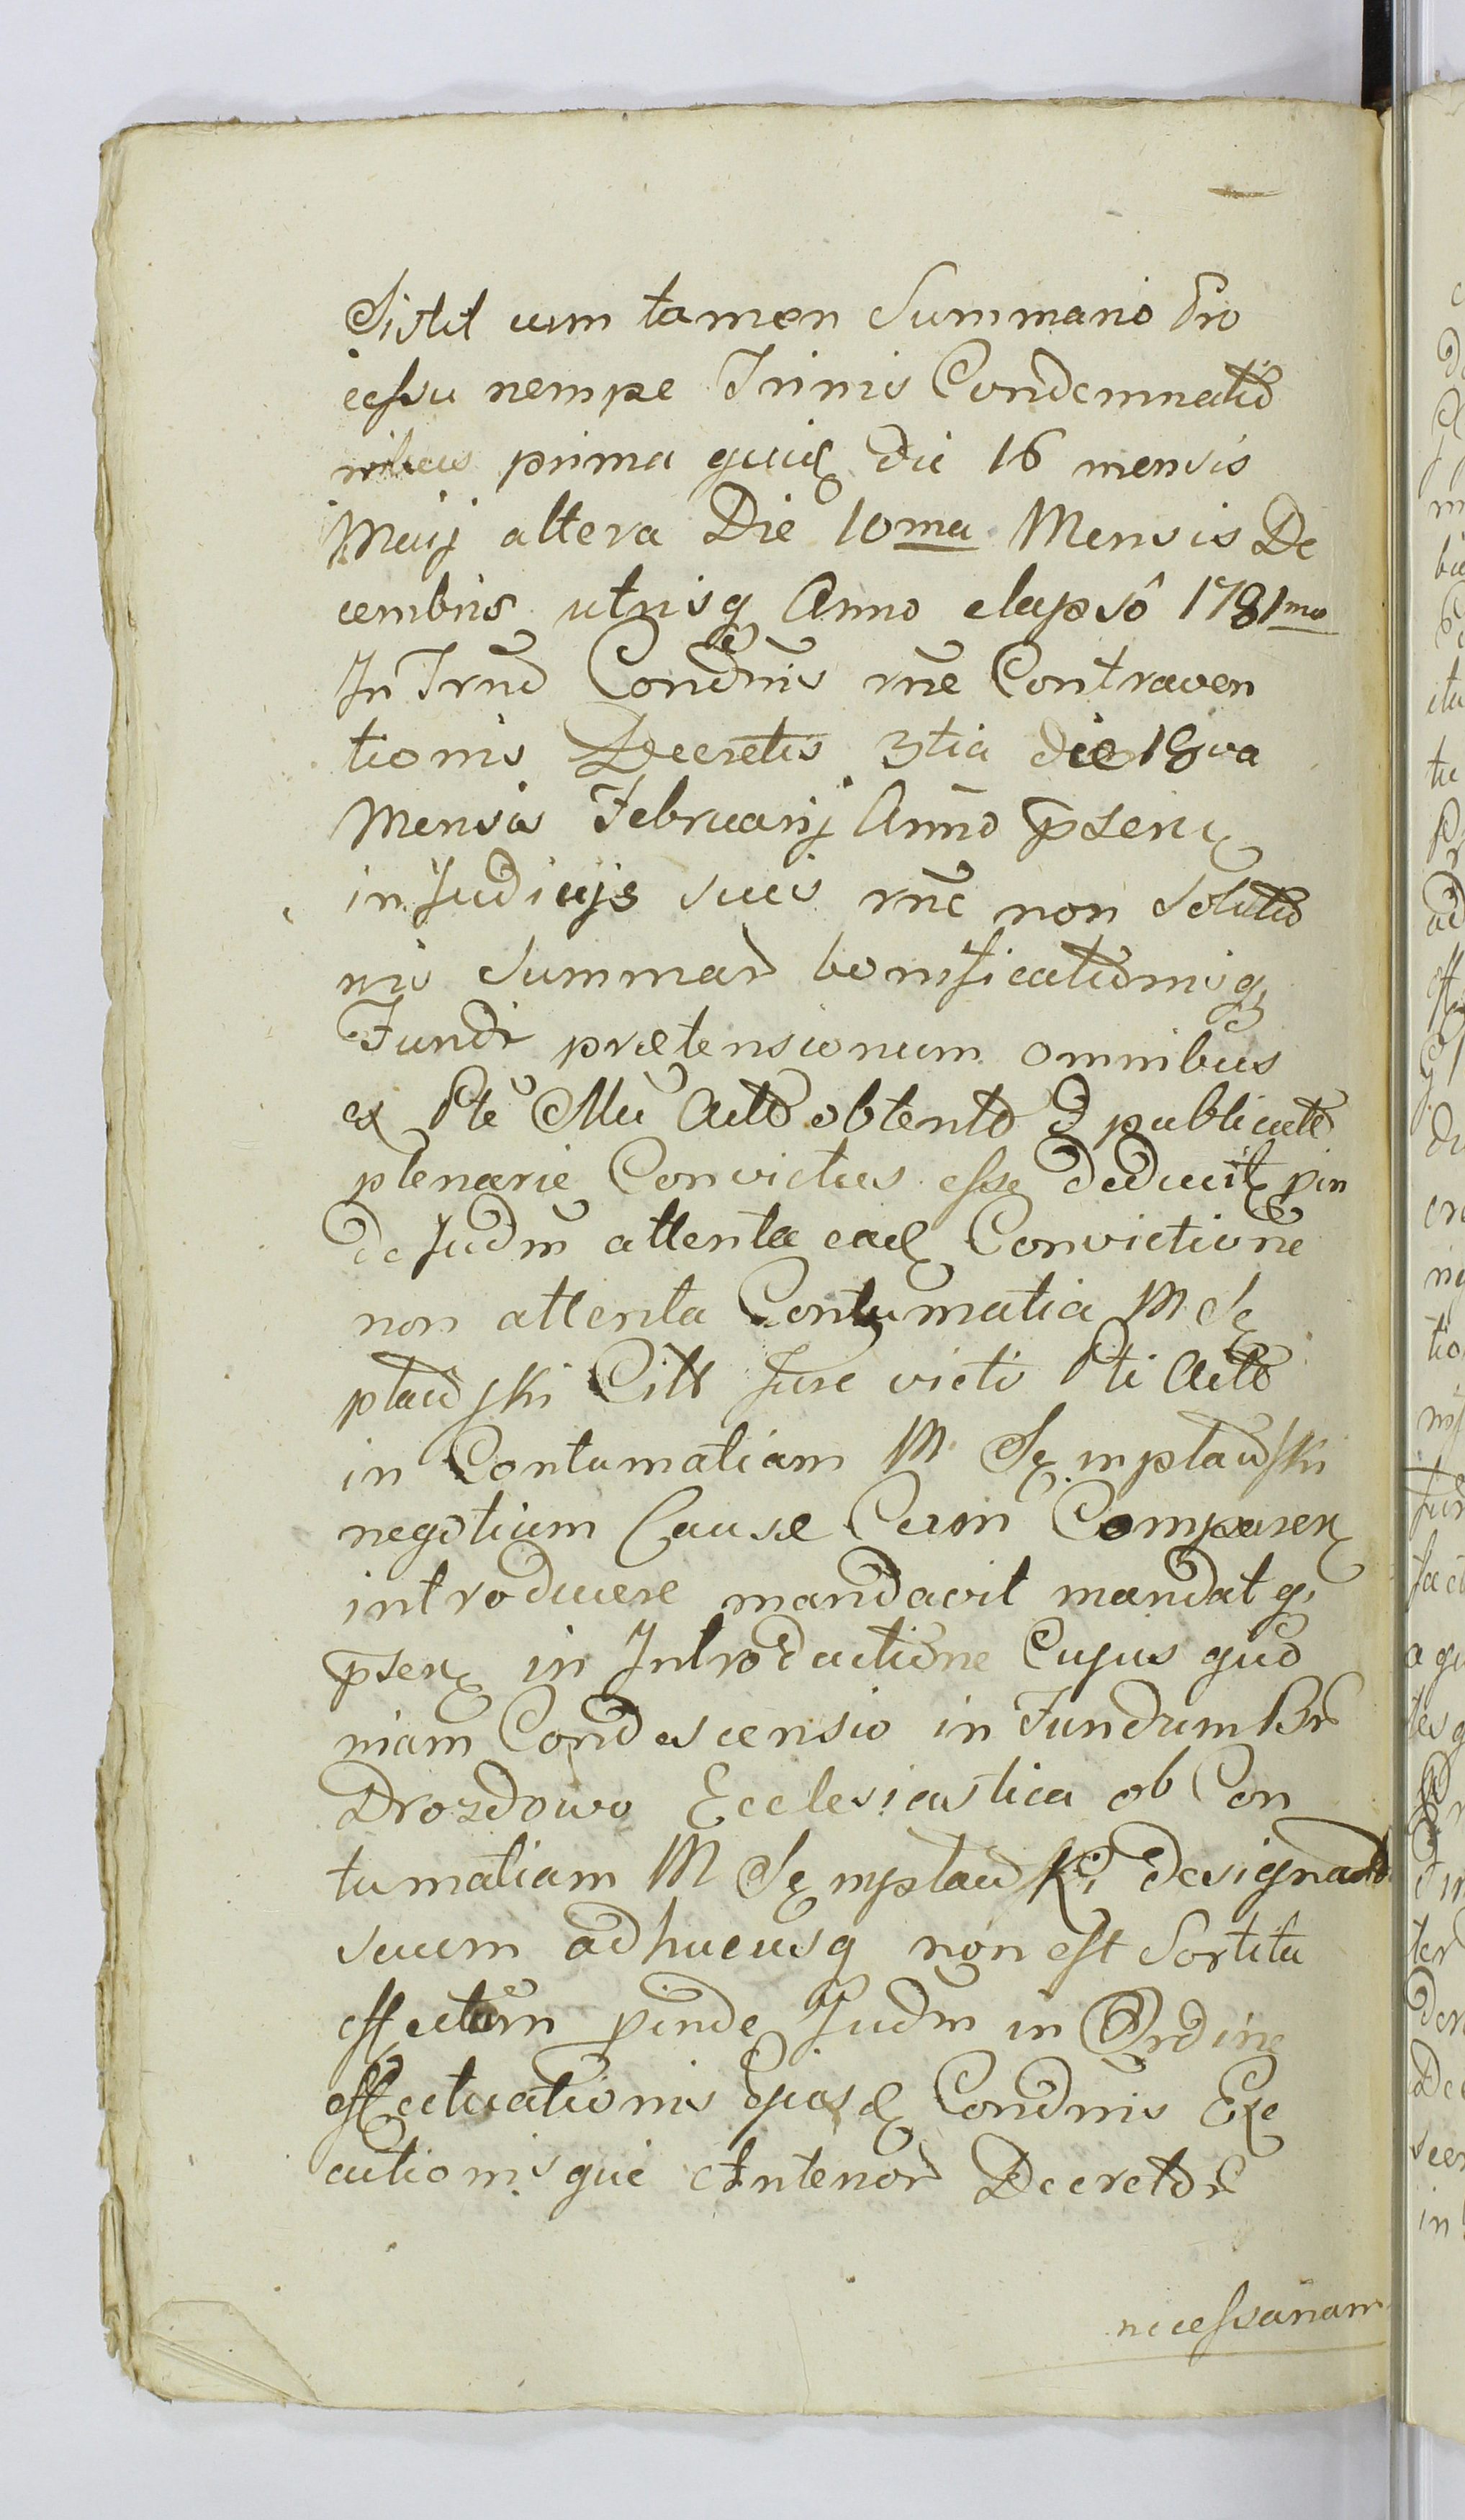 Sistit cum tamen Summario Pro
cessu nempe Trinis Condemnatio
nibus prima quid die 16 mensis
Maij altera Die 10ma Mensis De
cembris utrisq Anno elapsô 1781mo
In Trnõ Condnis rne Contraven
tionis Decretis 3tia die 18va
Mensis Februarij Anno psen
in Judicijs suis rne non Solutio
nis Summar bonificationisq
Fundi prætensionum omnibus
ex Pte Mci Acto obtento & publicato
plenarie Convictus esse deducit pin
de Judm attenta ead Convictione
non attenta Contumatia M Sę
plawski Citt Jure victi Pti Acto
in Contumatiam M. Sę mplawski
negotium Causæ Coram Comparen
introducere mandavit mandatq
psen in Introductione Cujus quo
niam Condescensio in Fundum Br
Drozdowo Ecclesiastica ob Con
tumatiam M Sę mplawski designando
suum adhucusq non est Sortita
effectum pinde Judm in Ordine
effectuationis Ejusd Condnis Exe
cutionisque Anterior Decretor
necessariam